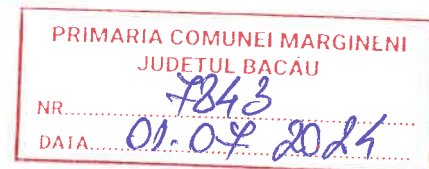 PRIMARIA COMUNEI MARGINENI
JUDEŢUL BACĂU
NR. 7843
DATA 01.07 2024